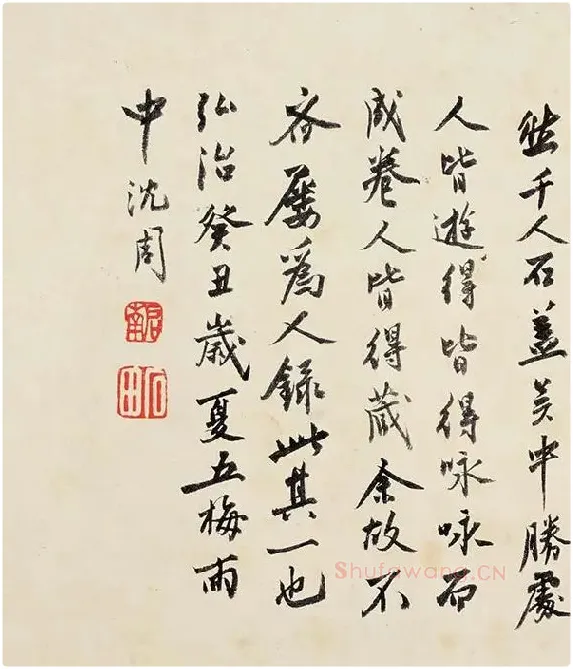 然千人石蓋吴中勝處
人皆遊得皆得咏咏而
成卷人皆得藏余故不
吝屢爲人録此其一也
弘治癸丑歲夏五梅雨
中沈周
啟南
石田
Shufawang.CN